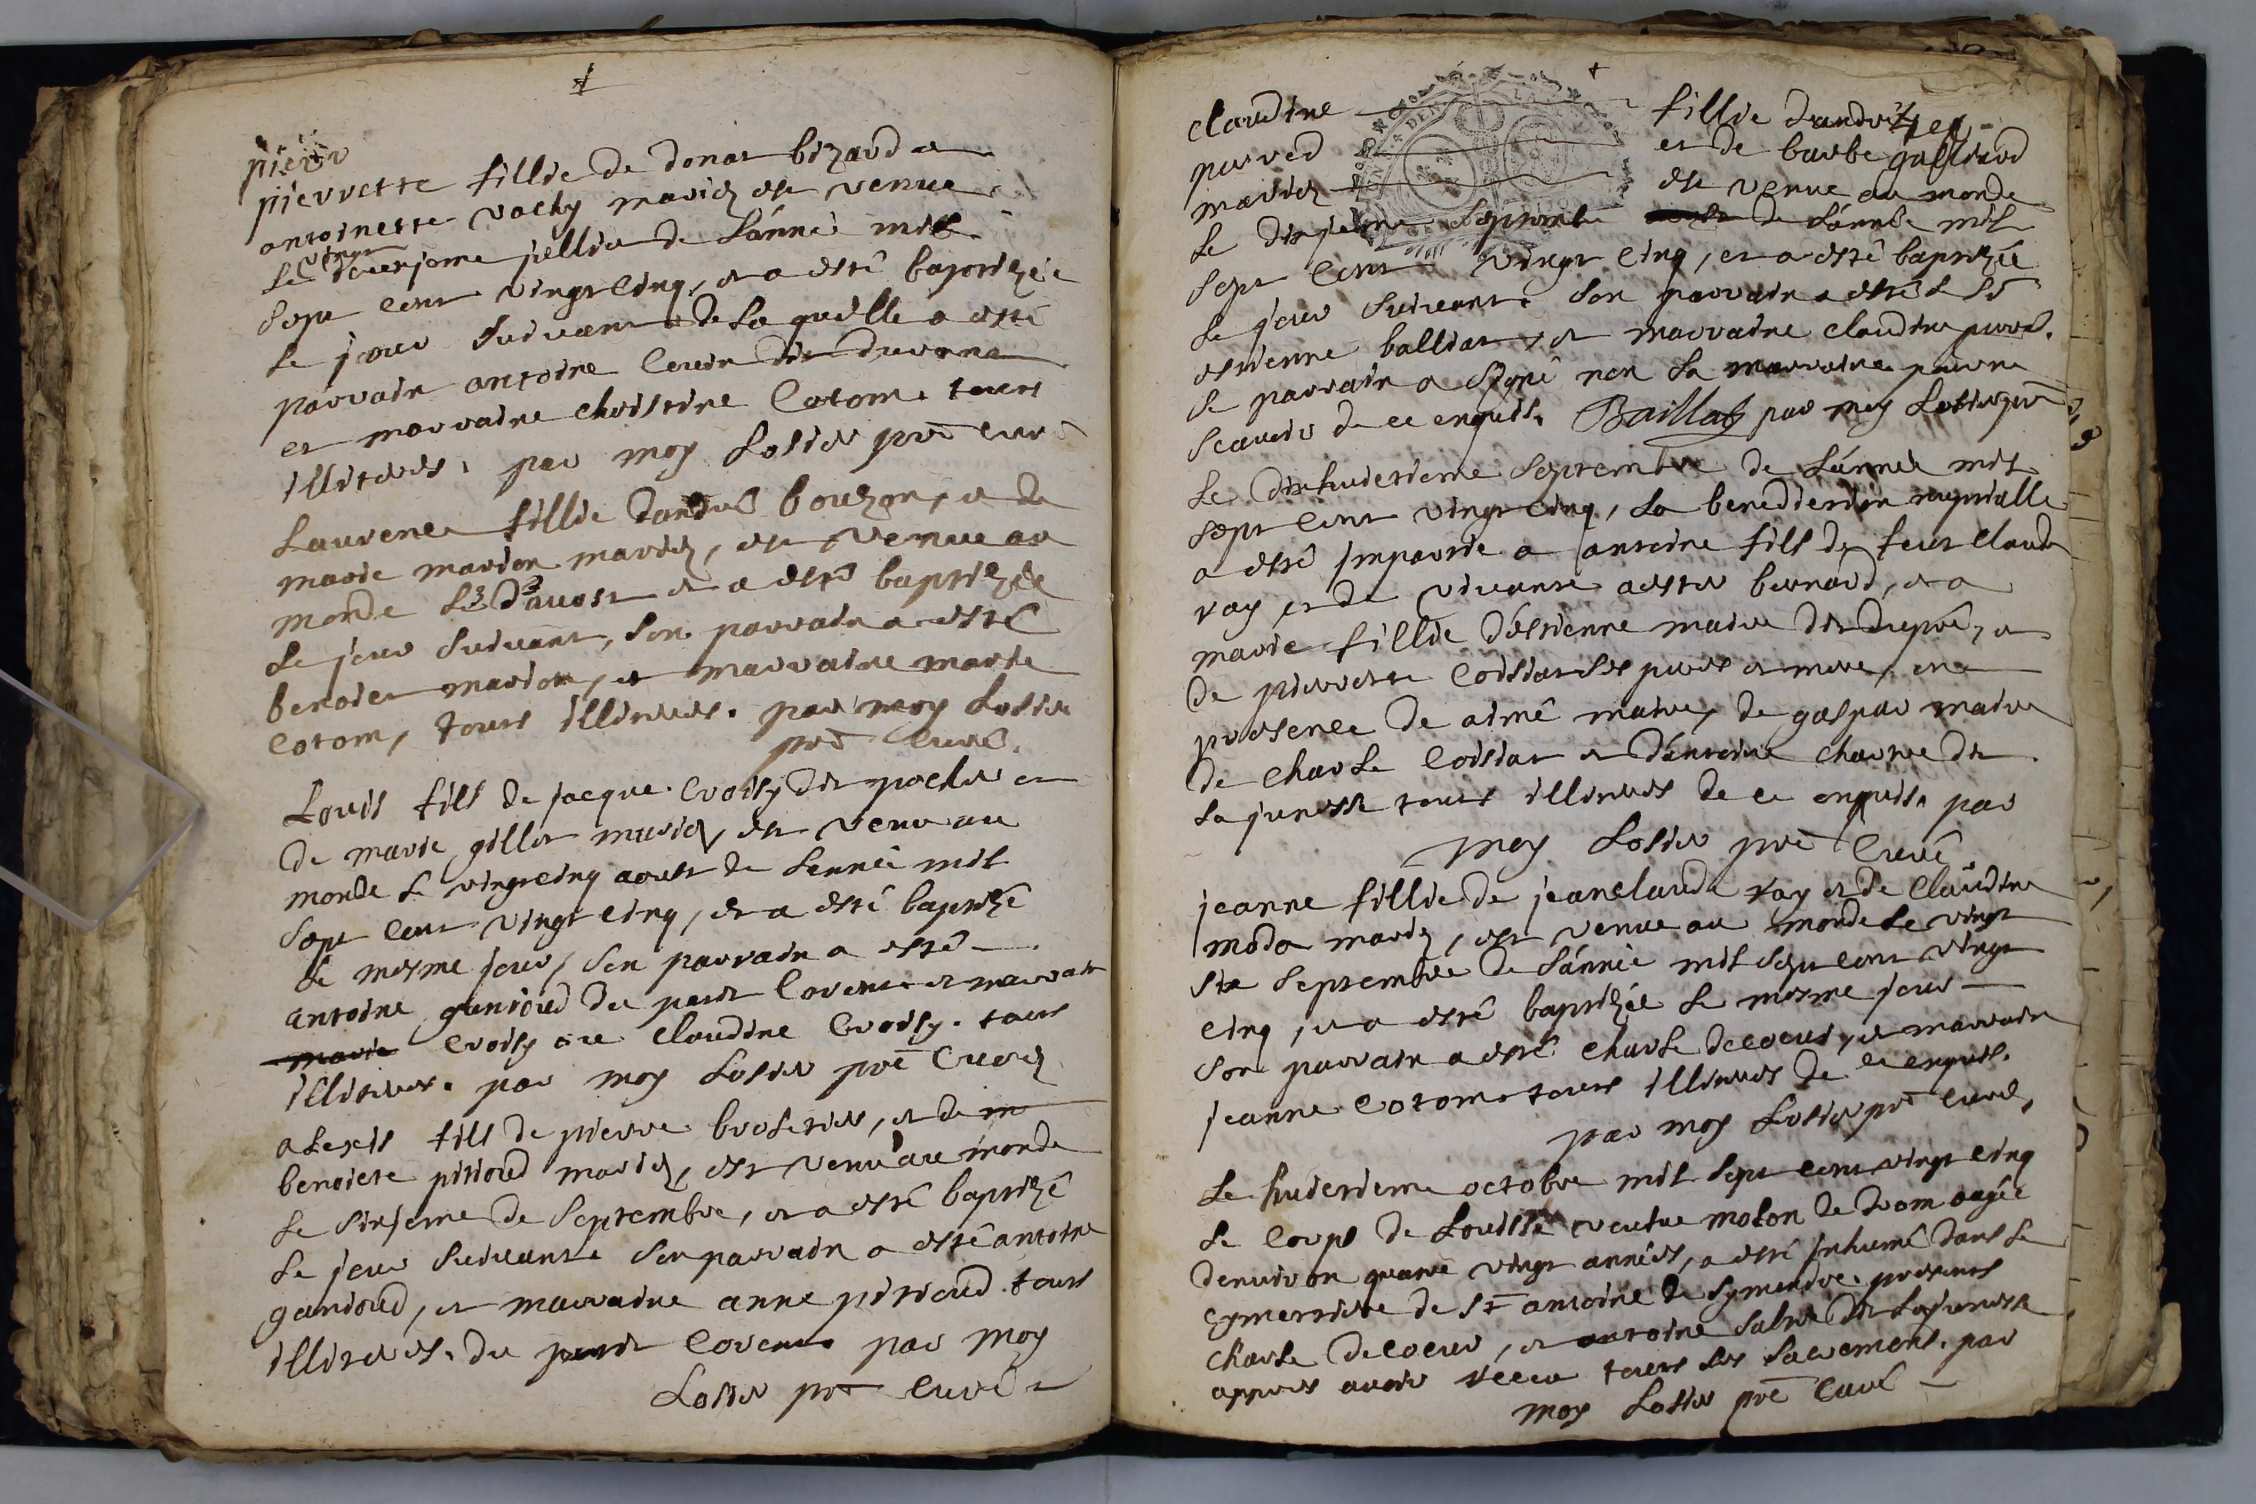 pierr
pierrette fillie de donat bizard et
antoinette vachy mariez est venue
vingt
Le deuxieme juillie de L'année mil
Sept cent vingt cinq, et a esté baptizée
Le jour Suivant de La quelle a esté
parrain antoine dit
et marraine christine Cotom. touts
illiterés. par moy Losier pre curé
Laurence fillie d'andré bouzon, et de
marie marion mariez, est venue au
monde Le 3 d'aoust et a esté baptizée
Le jour Suivant, Son parrain a esté
benoict marion, et marraine marie
Cotom, touts illiterés. par moy Losier
pre curé.
Louis fils de jacque Croisy dit et
de marie gillet mariez, est venu au
monde Le vingt cinq aoust de L'année mil
Sept cent vingt cinq, et a esté baptizé
Le mesme jour, Son parrain a esté
antoine ganioud du petit Corent et marrain
marie Croisy Claudine Croisy. touts
illiterés. par moy Losier pre Curé
alexis fils de pierre et de m
benoiete pitioud mariez, est venu au monde
Le Sixieme de Septembre, et a esté baptizé
Le jour Suivant. Son parrain a esté antoine
ganioud, et marraine anne pitioud touts
illiterés. du petit Corent par moy
Losier pre curé
claudine fillie d'andré
et de barbe galliard
mariez est venue au monde
Le dixieme Septembre de L'année mil
Sept cent vingt cinq, et a esté baptizée
Le jour Suivant. Son parrain a esté Sr
estienne balliat, et marraine claudine
Le parrain a Signé non La marraine pour ne
Scavoir de ce enquis. Baillat par moy Losier pre
Le dixhuictieme Septembre de L'année mil
Sept cent vingt cinq, La benediction nuptialle
a esté impartie a antoine fils de feut claude
ray, et de vivante bernard, et a
marie fillie d'estienne maire dit dupré, et
de pierrette Coistat Ses pere et mere, en
presence de aimé maire, de gaspar maire
de charle Coistat et d'antoine dit
La junesse touts illiterés de ce enquis. par
moy Losier pre Curé
jeanne fillie de jeanclaude ray et de Claudine
moda mariez, est venue au monde Le vingt
Six Septembre de L'année mil Sept cent vingt
cinq, et a esté baptizée Le mesme jour
Son parrain a esté charle decoeur, et marrain
jeanne Cotom touts illiterés de ce enquis.
par moy Losier pre curé,
Le huictieme octobre mil Sept cent vingt cinq
Le Corps de Louisse veufve moton de drom ageé
d'environ quatre vingt années, a esté inhumé dans Le
cymettiere de St antoine de Symendre. presents
charle Decoeur, et antoine dit La junesse
appres avoir receu touts Les Sacrements. par
moy Losier pre Curé